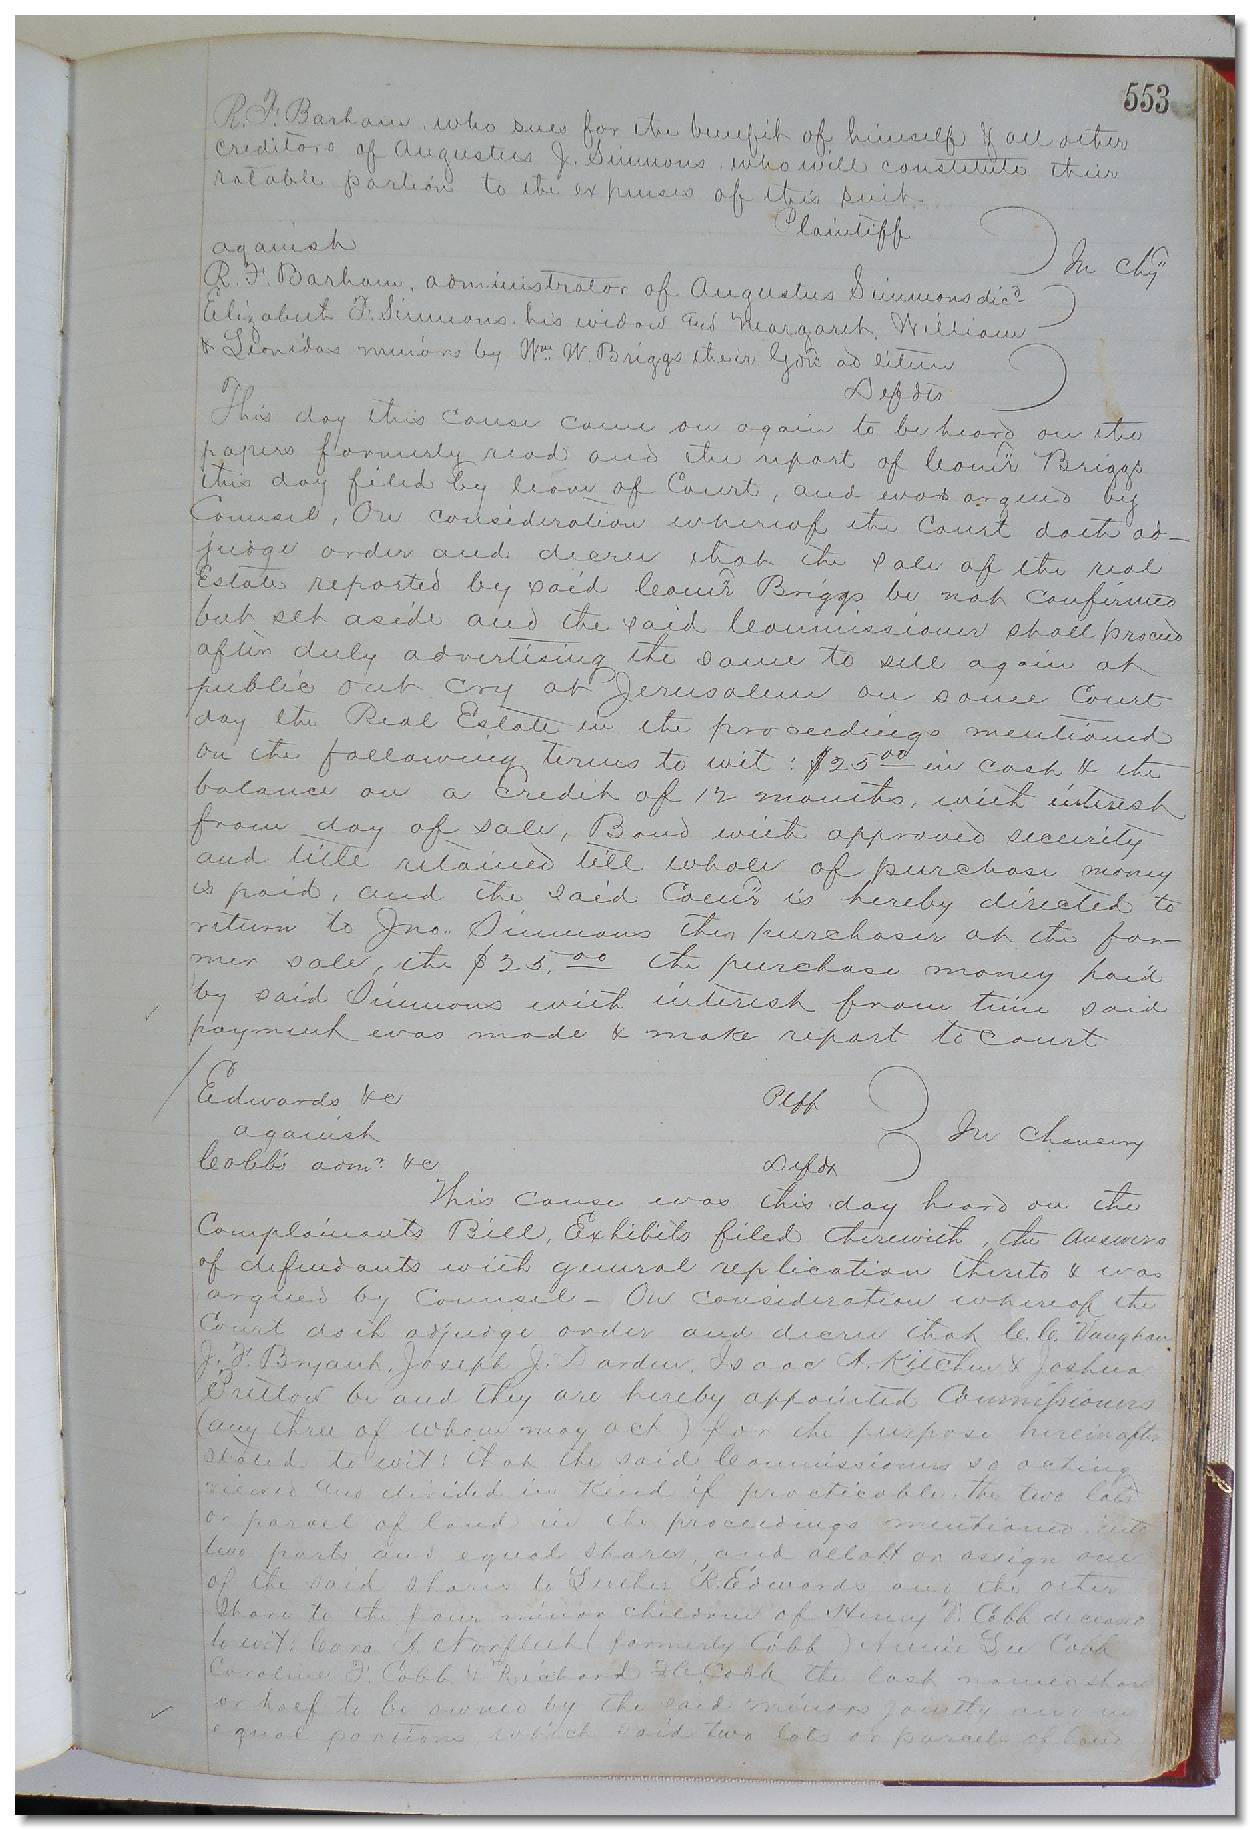 553
R. F. Barham who sues for the benefit of himself & all other
creditors of Augustus J. Simmons who will constitute their
ratable portion to the expenses of this suit
Plaintiff
against
In chy
R. F. Barham, administrator of Augustus Simmons dec'd
Elizabeth F. Simmons his widow and Margaret, William
& Leonidas minors by Wm. W. Briggs their Gdn ad litem
Defdts
This day this cause came on again to be heard on the
papers formerly read and the report of Comr Briggs
this day filed by leave of Court, and was argued by
Counsel, On consideration whereof the Court doth ad-
judge order and decree that the sale of the real
Estate reported by said Comr Briggs be not confirmed
but set aside and the said Commissioner shall proceed
after duly advertising the same to sell again at
public out cry at Jerusalem on some Court
day the Real Estate in the proceedings mentioned
on the following terms to wit: $25 00 in cash & the
balance on a Credit of 12 months, with interest
from day of sale, Bond with approved security
and title retained till whole of purchase money
is paid, and the said Comr is hereby directed to
return to Jno. Simmons the purchaser at the for-
mer sale, the $25.00 the purchase money paid
by said Simmons with interest from time said
payment was made & make report to Court
Edwards &c Plff
against In Chancery
Cobb's adm. &c Defdt
This cause was this day heard on the
Complainants Bill, Exhibits filed therewith, the Answers
of defendants with general replication thereto & was
argued by Counsel - On consideration whereof the
Court doth adjudge order and decree that C. C. Vaughan
J. F. Bryant, Joseph J. Darden, Isaac A. Kitchen & Joshua
Pretlow be and they are hereby appointed Commissioners
(any three of whom may act) for the purpose hereinafter
stated to wit: that the said Commissioners so acting
viewed and divided in Kind if practicable the two lots
or parcel of land in the proceedings mentioned into
two parts and equal shares, and allott or assign one
of the said shares to Luther R. Edwards and the other
Share to the four minor children of Henry Cobb deceased
to wit: Cora A Norfleet (formerly Cobb) Annie Lee Cobb
Caroline F. Cobb & Richard Cobb the last named share
or half to be owned by the said minors jointly and in
equal portions which said two lots or parcels of land